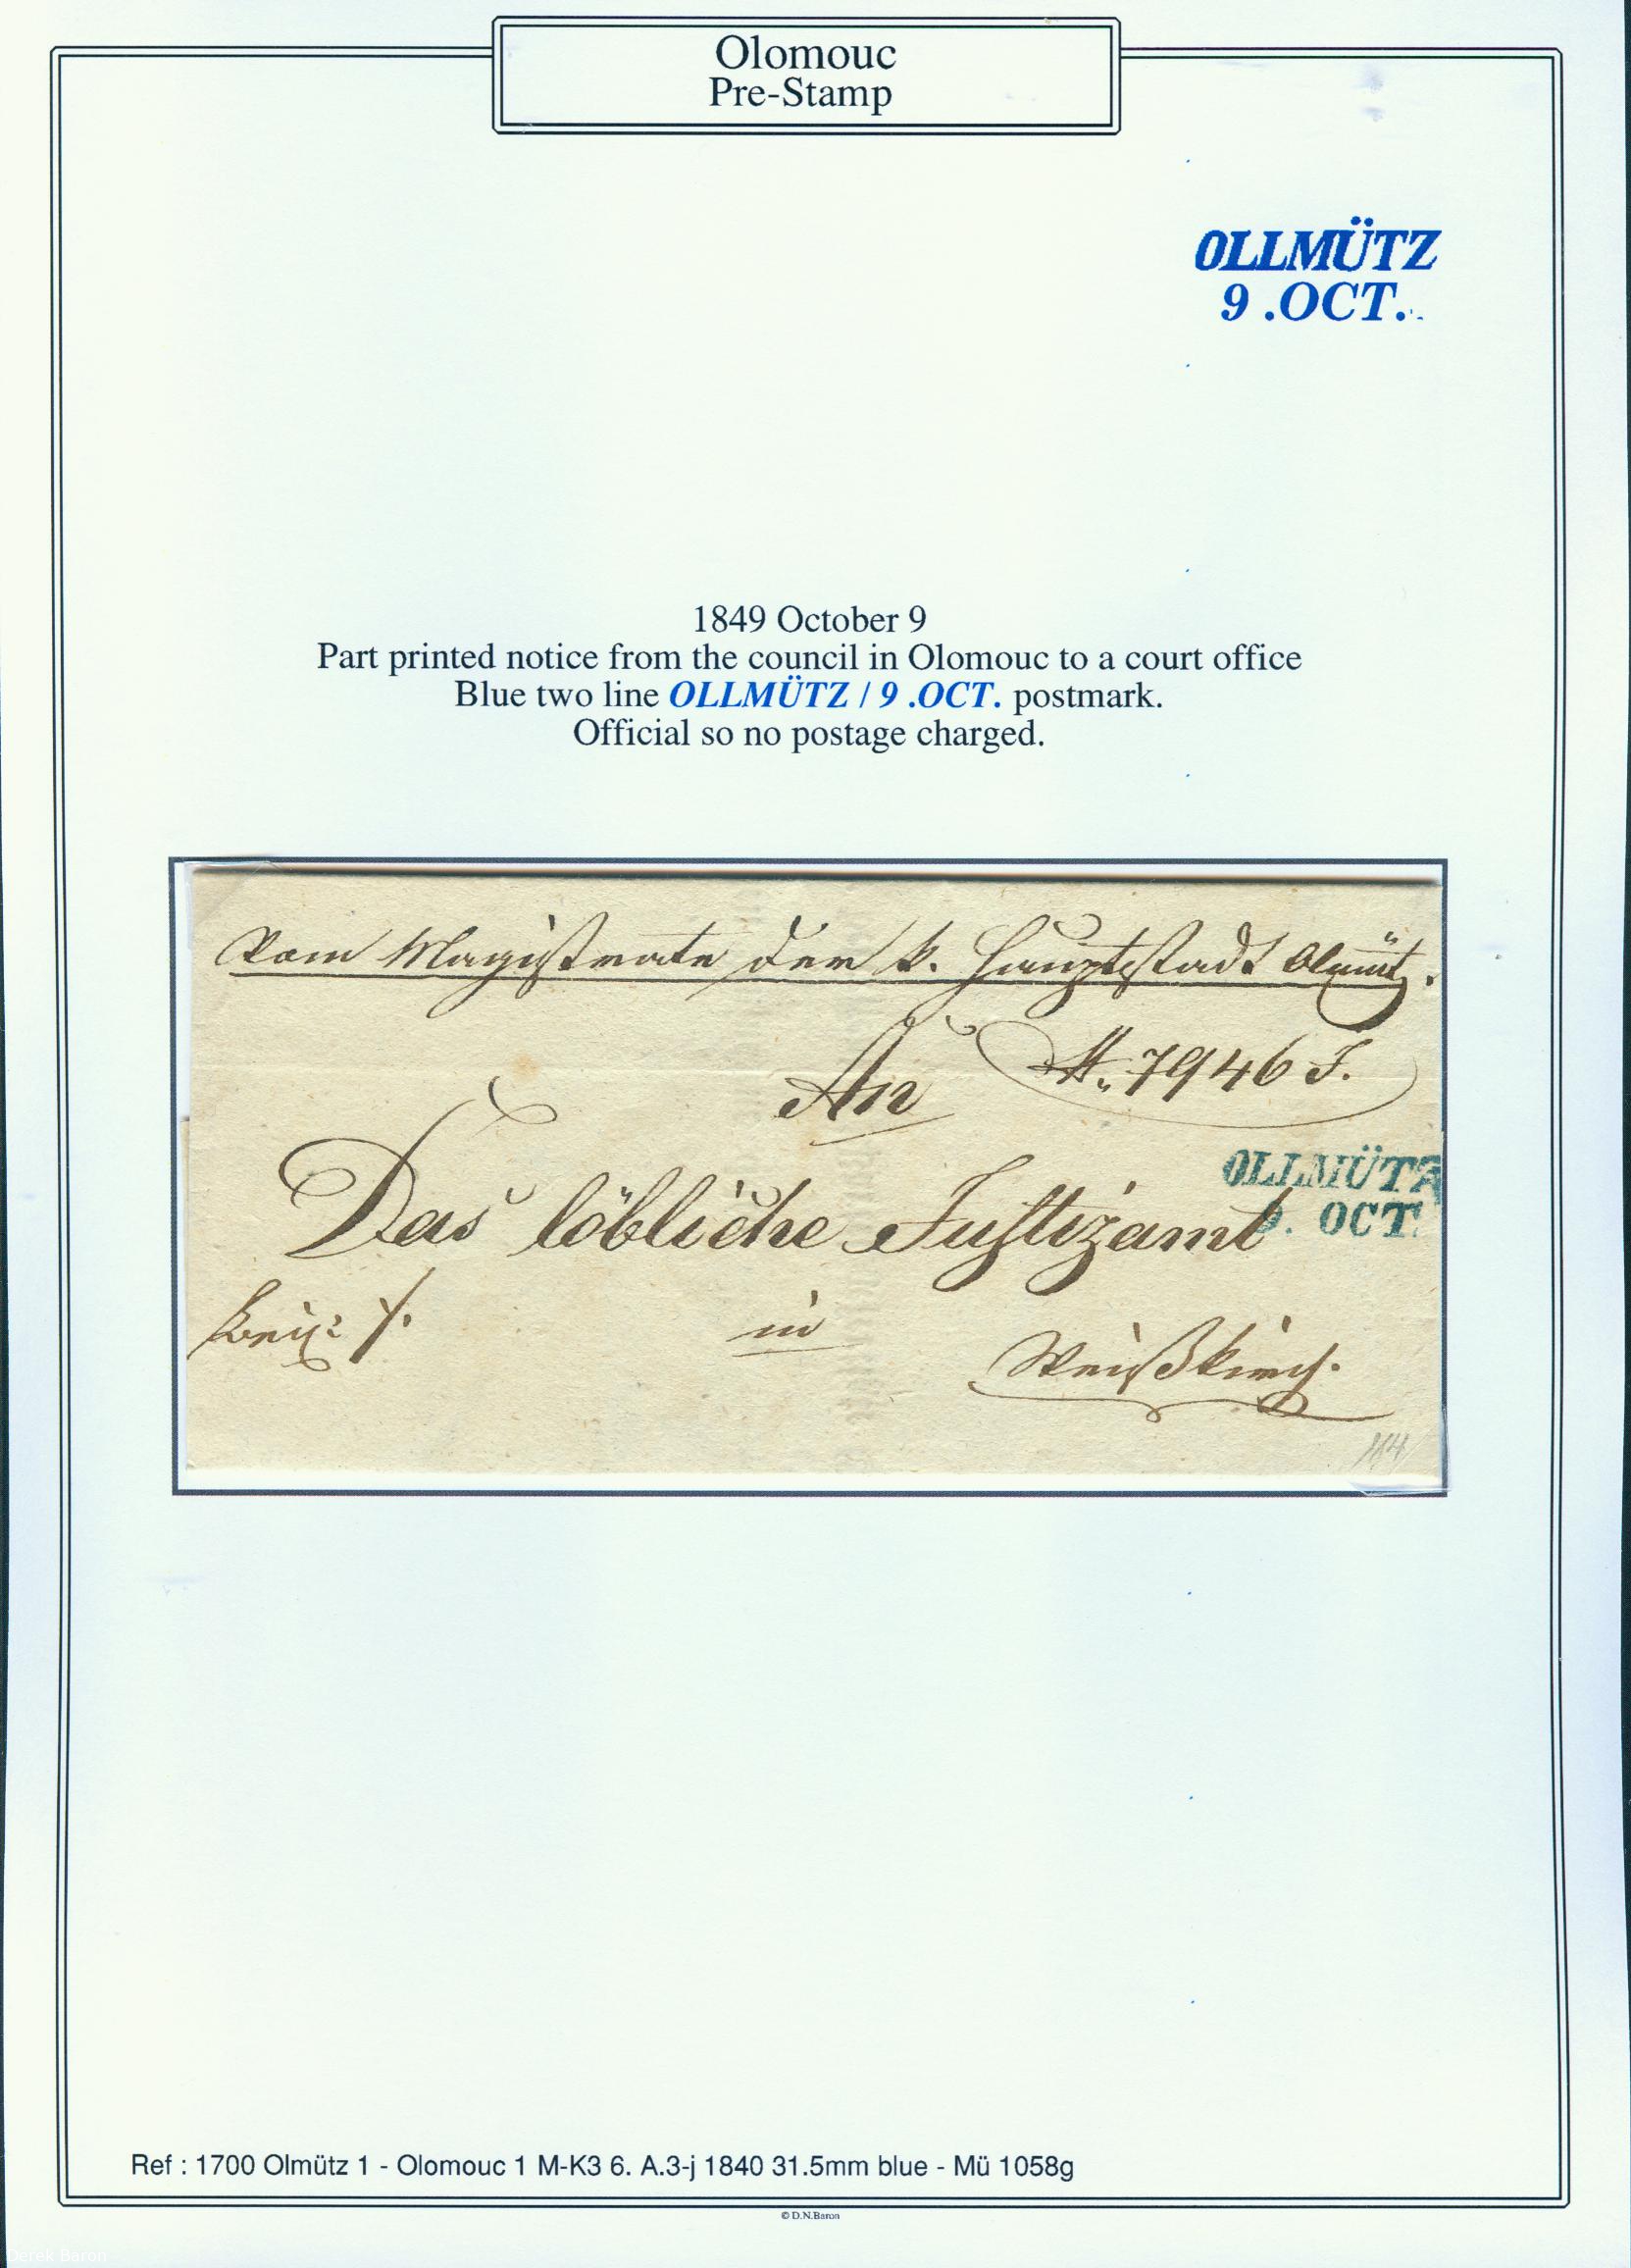 Olomouc
Pre-Stamp
OLLMÜTZ
9 .OCT.
1849 October 9
Part printed notice from the council in Olomouc to a court office
Blue two line OLLMÜTZ / 9 .OCT. postmark.
Official so no postage charged.
Vom Magistrate der k. Hauptstadt Olmütz.
An
7946 J.
OLLMÜTZ
9. OCT.
Das löbliche Justizamt
in
Weißkirch.
Ref : 1700 Olmütz 1 - Olomouc 1 M-K3 6. A.3-j 1840 31.5mm blue - Mü 1058g
© D.N.Baron
Derek Baron